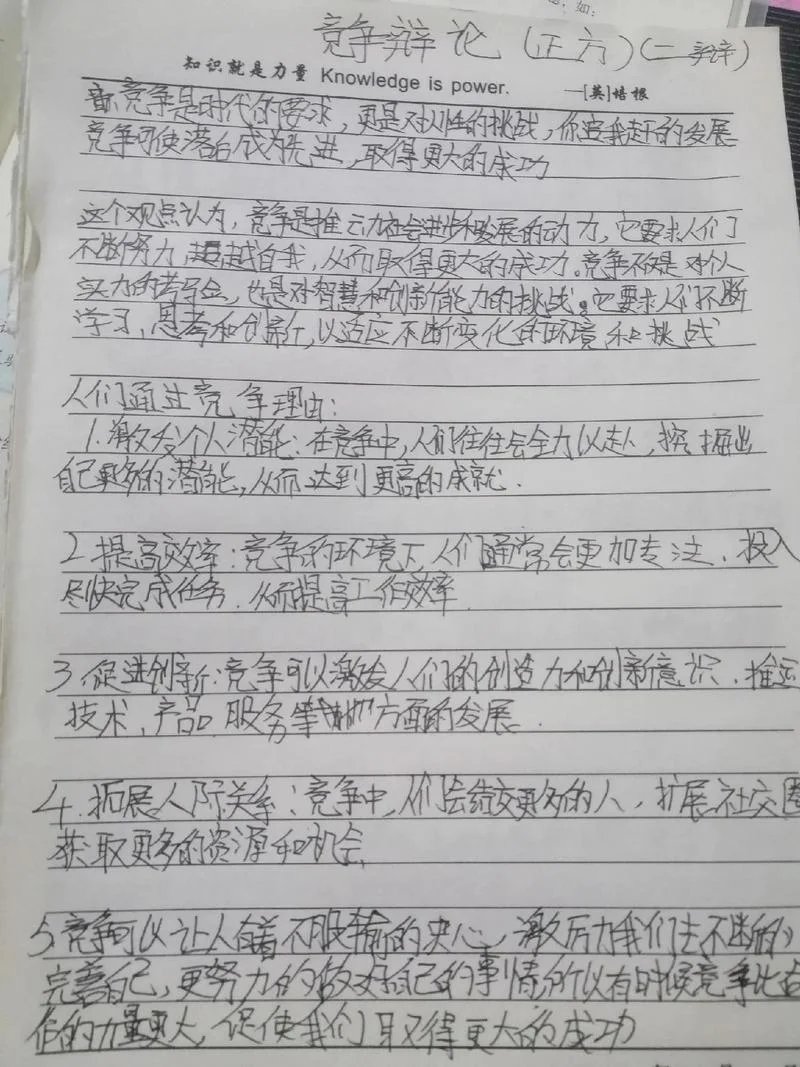 竞争辩论(正方)(二辩)
知识就是力量 Knowledge is power. —[英]培根
竞争是时代的要求,更是对人性的挑战,你追我赶的发展
竞争可使落后成为先进,取得更大的成功
这个观点认为,竞争是推动社会进步和发展的动力,它要求人们
不断努力,超越自我,从而取得更大的成功。竞争不仅是对个人
实力的考验,也是对智慧和创新能力的挑战。它要求人们不断
学习、思考和创新,以适应不断变化的环境和挑战
人们通过竞争理由:
1.激发个人潜能:在竞争中,人们往往会全力以赴,挖掘出
自己更多的潜能,从而达到更高的成就.
2.提高效率:竞争的环境下,人们通常会更加专注、投入
尽快完成任务.从而提高工作效率.
3.促进创新:竞争可以激发人们的创造力和创新意识,推动
技术,产品,服务等方面的发展.
4.拓展人际关系:竞争中,人们会结交更多的人,扩展社交圈
获取更多的资源和机会
5.竞争可以让人有着不服输的决心,激励我们去不断的
完善自己,更努力的做好自己的事情所以有时候竞争比合
作的力量更大,促使我们取得更大的成功